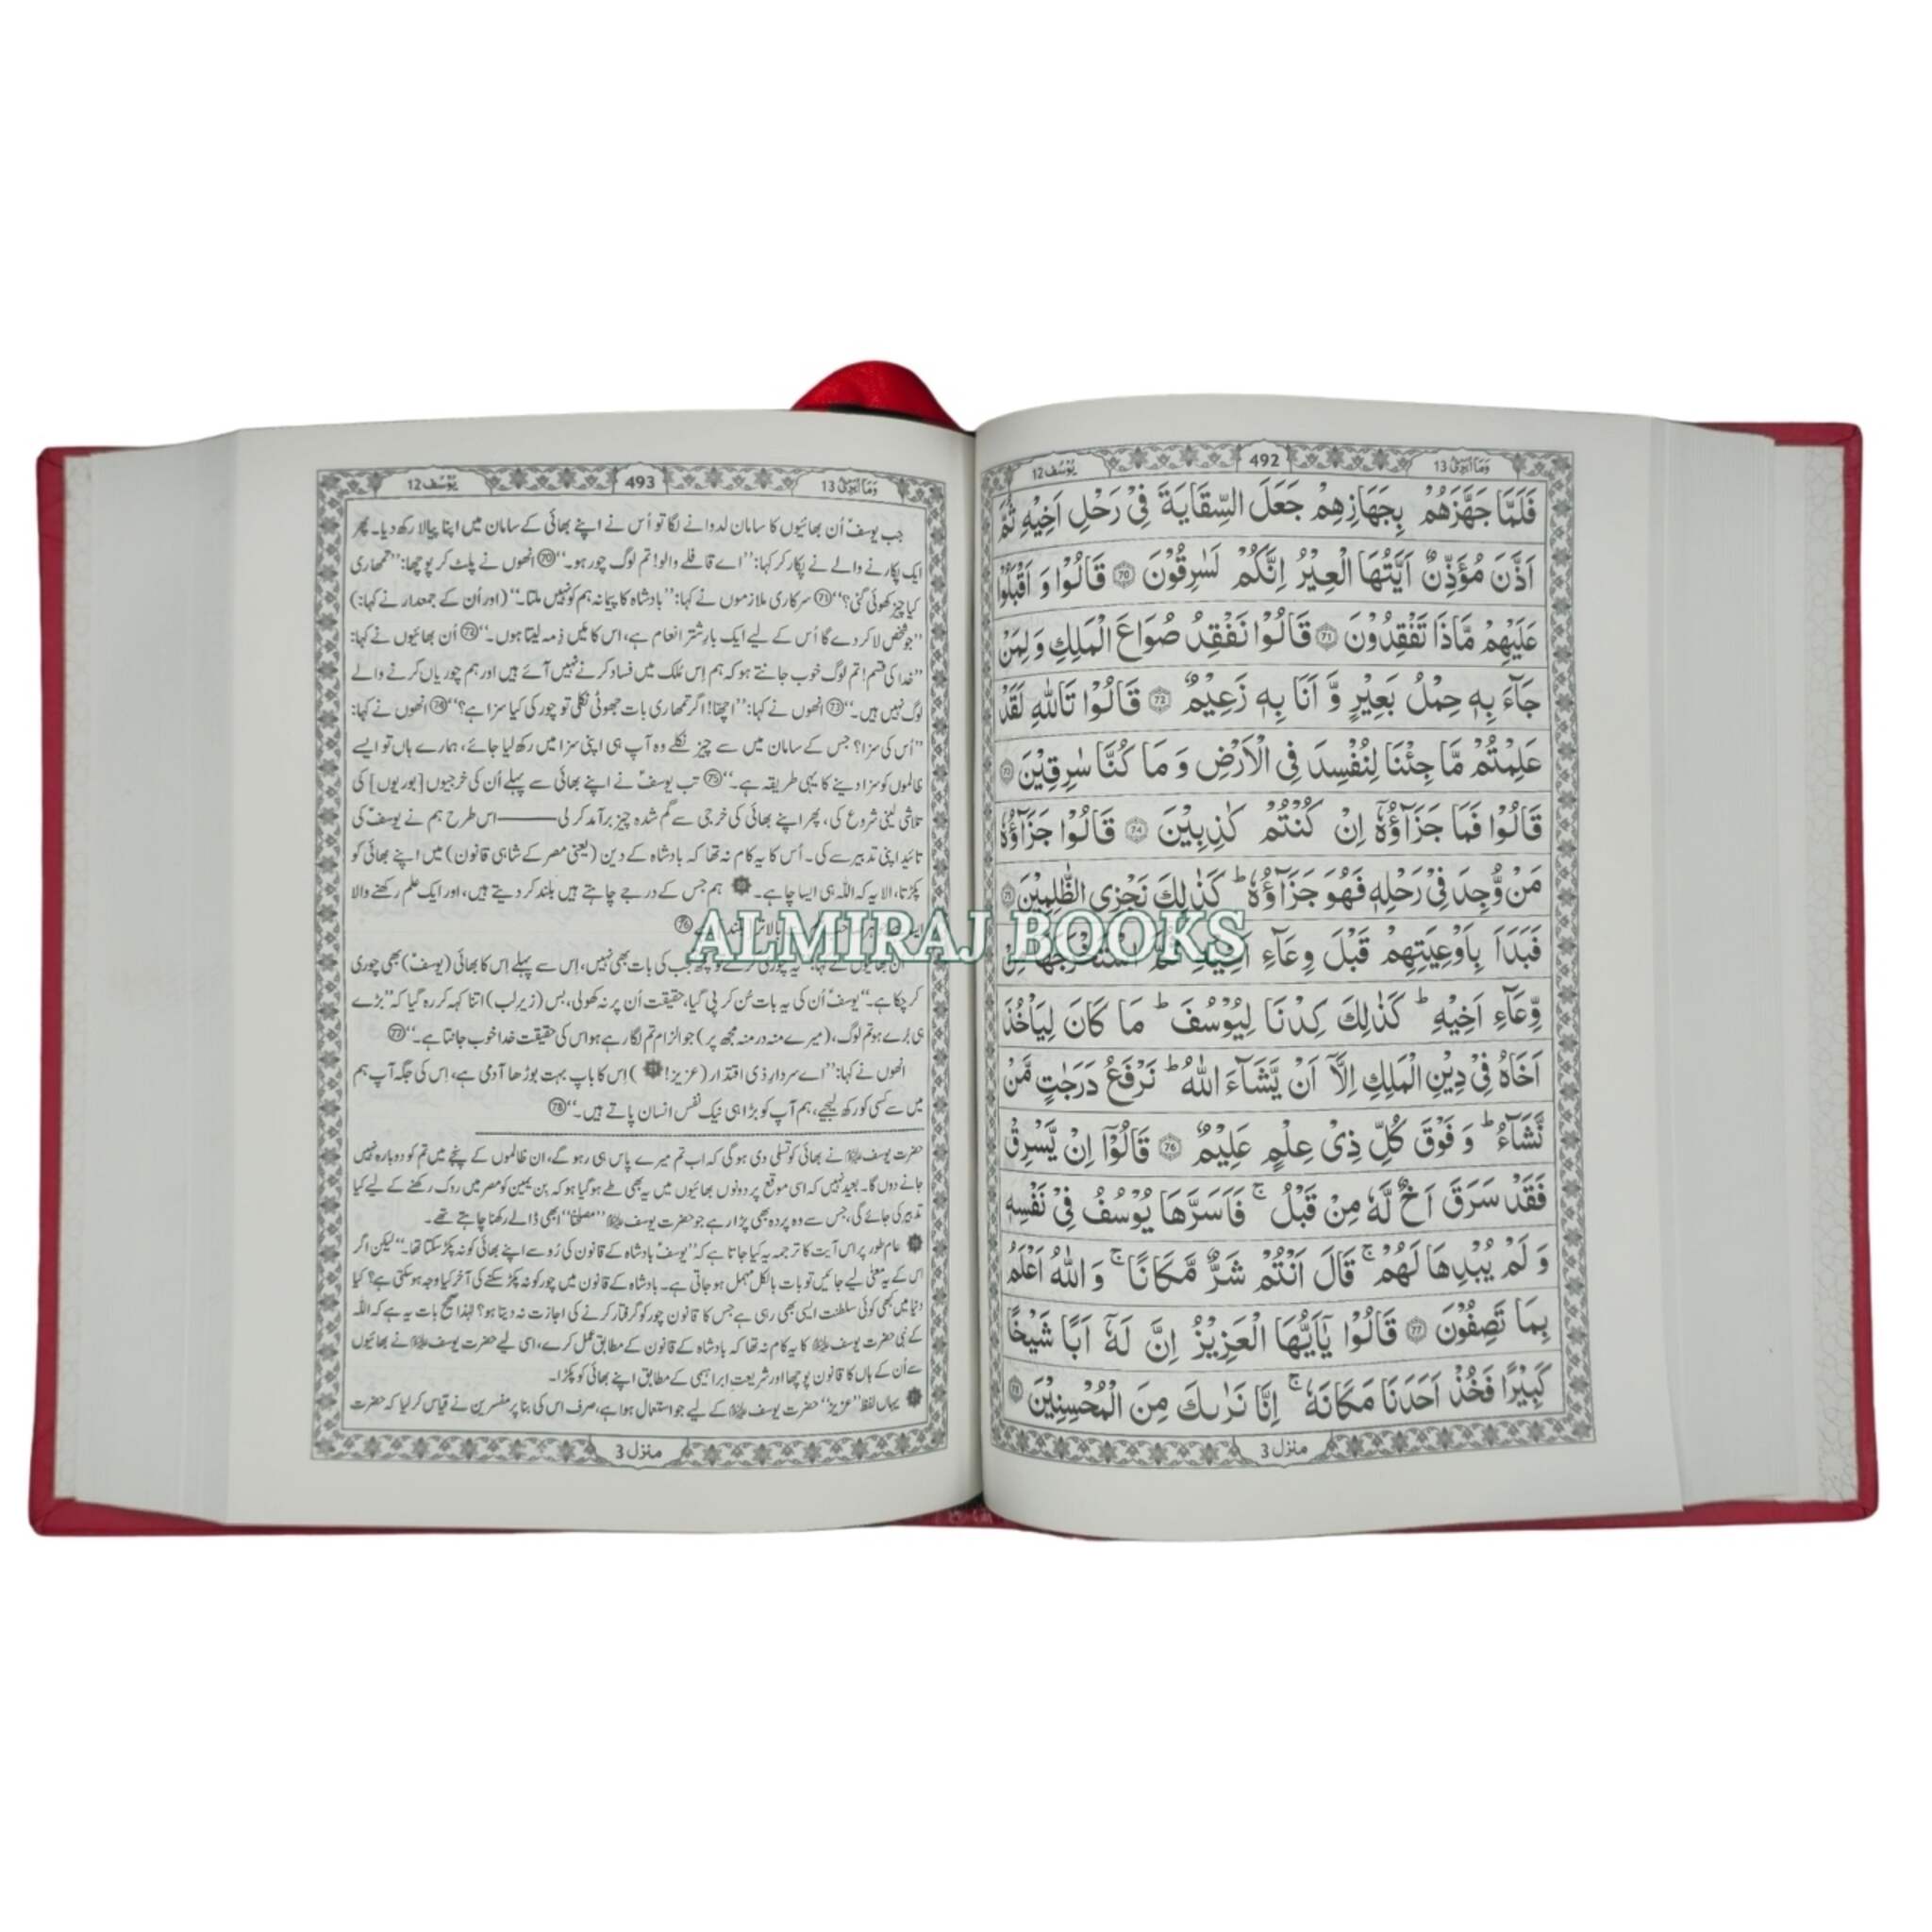 وَمَا اُبَرِّئُ 13
492
يُوْسُف 12
فَلَمَّا جَهَّزَهُمْ بِجَهَازِهِمْ جَعَلَ السِّقَايَةَ فِيْ رَحْلِ اَخِيْهِ ثُمَّ
اَذَّنَ مُؤَذِّنٌ اَيَّتُهَا الْعِيْرُ اِنَّكُمْ لَسٰرِقُوْنَ ﴿70﴾ قَالُوْا وَ اَقْبَلُوْا
عَلَيْهِمْ مَّاذَا تَفْقِدُوْنَ ﴿71﴾ قَالُوْا نَفْقِدُ صُوَاعَ الْمَلِكِ وَ لِمَنْ
جَآءَ بِهٖ حِمْلُ بَعِيْرٍ وَّ اَنَا بِهٖ زَعِيْمٌ ﴿72﴾ قَالُوْا تَاللّٰهِ لَقَدْ
عَلِمْتُمْ مَّا جِئْنَا لِنُفْسِدَ فِي الْاَرْضِ وَ مَا كُنَّا سٰرِقِيْنَ ﴿73﴾
قَالُوْا فَمَا جَزَآؤُهٗۤ اِنْ كُنْتُمْ كٰذِبِيْنَ ﴿74﴾ قَالُوْا جَزَآؤُهٗ
مَنْ وُّجِدَ فِيْ رَحْلِهٖ فَهُوَ جَزَآؤُهٗ ؕ كَذٰلِكَ نَجْزِي الظّٰلِمِيْنَ ﴿75﴾
فَبَدَاَ بِاَوْعِيَتِهِمْ قَبْلَ وِعَآءِ
وِّعَآءِ اَخِيْهِ ؕ كَذٰلِكَ كِدْنَا لِيُوْسُفَ ؕ مَا كَانَ لِيَاْخُذَ
اَخَاهُ فِيْ دِيْنِ الْمَلِكِ اِلَّاۤ اَنْ يَّشَآءَ اللّٰهُ ؕ نَرْفَعُ دَرَجٰتٍ مَّنْ
نَّشَآءُ ؕ وَ فَوْقَ كُلِّ ذِيْ عِلْمٍ عَلِيْمٌ ﴿76﴾ قَالُوْۤا اِنْ يَّسْرِقْ
فَقَدْ سَرَقَ اَخٌ لَّهٗ مِنْ قَبْلُ ۚ فَاَسَرَّهَا يُوْسُفُ فِيْ نَفْسِهٖ
وَ لَمْ يُبْدِهَا لَهُمْ ۚ قَالَ اَنْتُمْ شَرٌّ مَّكَانًا ۚ وَ اللّٰهُ اَعْلَمُ
بِمَا تَصِفُوْنَ ﴿77﴾ قَالُوْا يٰۤاَيُّهَا الْعَزِيْزُ اِنَّ لَهٗۤ اَبًا شَيْخًا
كَبِيْرًا فَخُذْ اَحَدَنَا مَكَانَهٗ ۚ اِنَّا نَرٰىكَ مِنَ الْمُحْسِنِيْنَ ﴿78﴾
منزل 3
وَمَا اُبَرِّئُ 13
493
يُوْسُف 12
جب یوسفؑ اُن بھائیوں کا سامان لدوانے لگا تو اُس نے اپنے بھائی کے سامان میں اپنا پیالا رکھ دیا۔ پھر
ایک پکارنے والے نے پکار کر کہا: ’’اے قافلے والو! تم لوگ چور ہو۔‘‘ (70) انھوں نے پلٹ کر پوچھا: ’’تمھاری
کیا چیز کھوئی گئی؟‘‘ (71) سرکاری ملازموں نے کہا: ’’بادشاہ کا پیمانہ ہم کو نہیں ملتا۔‘‘ (اور اُن کے جمعدار نے کہا:)
’’جو شخص لا کر دے گا اُس کے لیے ایک بارِ شتر انعام ہے، اس کا میں ذمہ لیتا ہوں۔‘‘ (72) اُن بھائیوں نے کہا:
’’خدا کی قسم! تم لوگ خوب جانتے ہو کہ ہم اِس مُلک میں فساد کرنے نہیں آئے ہیں اور ہم چوریاں کرنے والے
لوگ نہیں ہیں۔‘‘ (73) انھوں نے کہا: ’’اچھا! اگر تمھاری بات جھوٹی نکلی تو چور کی کیا سزا ہے؟‘‘ (74) انھوں نے کہا:
’’اُس کی سزا؟ جس کے سامان میں سے چیز نکلے وہ آپ ہی اپنی سزا میں رکھ لیا جائے، ہمارے ہاں تو ایسے
ظالموں کو سزا دینے کا یہی طریقہ ہے۔‘‘ (75) تب یوسفؑ نے اپنے بھائی سے پہلے اُن کی خرجیوں [بوریوں] کی
تلاشی لینی شروع کی، پھر اپنے بھائی کی خرجی سے گم شدہ چیز برآمد کر لی ——— اس طرح ہم نے یوسفؑ کی
تائید اپنی تدبیر سے کی۔ اُس کا یہ کام نہ تھا کہ بادشاہ کے دین (یعنی مصر کے شاہی قانون) میں اپنے بھائی کو
پکڑتا، الا یہ کہ اللہ ہی ایسا چاہے۔ ہم جس کے درجے چاہتے ہیں بلند کر دیتے ہیں، اور ایک علم رکھنے والا
(76)
کی بات بھی نہیں، اِس سے پہلے اِس کا بھائی (یوسفؑ) بھی چوری
کر چکا ہے۔‘‘ یوسفؑ اُن کی یہ بات سُن کر پی گیا، حقیقت اُن پر نہ کھولی، بس (زیرِ لب) اتنا کہہ کر رہ گیا کہ ’’بڑے
ہی بُرے ہو تم لوگ، (میرے منہ در منہ مجھ پر) جو الزام تم لگا رہے ہو اس کی حقیقت خدا خوب جانتا ہے۔‘‘ (77)
انھوں نے کہا: ’’اے سردارِ ذی اقتدار (عزیز!) اِس کا باپ بہت بوڑھا آدمی ہے، اِس کی جگہ آپ ہم
میں سے کسی کو رکھ لیجیے، ہم آپ کو بڑا ہی نیک نفس انسان پاتے ہیں۔‘‘ (78)
حضرت یوسفؑ نے بھائی کو تسلی دی ہو گی کہ اب تم میرے پاس ہی رہو گے، ان ظالموں کے پنجے میں تم کو دوبارہ نہیں
جانے دوں گا۔ بعید نہیں کہ اسی موقع پر دونوں بھائیوں میں یہ بھی طے ہو گیا ہو کہ بن یمین کو مصر میں روک رکھنے کے لیے کیا
تدبیر کی جائے گی، جس سے وہ پردہ بھی پڑا رہے جو حضرت یوسفؑ ’’مصلحتاً‘‘ ابھی ڈالے رکھنا چاہتے تھے۔
عام طور پر اس آیت کا ترجمہ یہ کیا جاتا ہے کہ ’’یوسفؑ بادشاہ کے قانون کی رُو سے اپنے بھائی کو نہ پکڑ سکتا تھا۔‘‘ لیکن اگر
اس کے یہ معنٰی لیے جائیں تو بات بالکل مہمل ہو جاتی ہے۔ بادشاہ کے قانون میں چور کو نہ پکڑ سکنے کی آخر کیا وجہ ہو سکتی ہے؟ کیا
دنیا میں کبھی کوئی سلطنت ایسی بھی رہی ہے جس کا قانون چور کو گرفتار کرنے کی اجازت نہ دیتا ہو؟ لہٰذا صحیح بات یہ ہے کہ اللہ
کے نبی حضرت یوسفؑ کا یہ کام نہ تھا کہ بادشاہ کے قانون کے مطابق عمل کرے، اسی لیے حضرت یوسفؑ نے بھائیوں
سے اُن کے ہاں کا قانون پوچھا اور شریعتِ ابراہیمی کے مطابق اپنے بھائی کو پکڑا۔
یہاں لفظ ’’عزیز‘‘ حضرت یوسفؑ کے لیے جو استعمال ہوا ہے، صرف اس کی بنا پر مفسرین نے قیاس کر لیا کہ حضرت
منزل 3
ALMIRAJ BOOKS